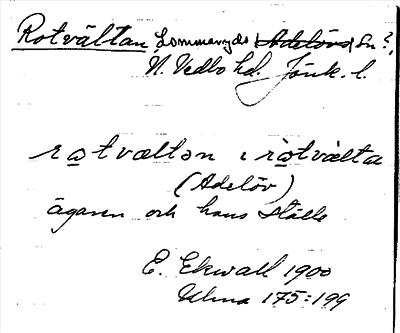 Rotvältan Lommaryds Adelövs sn?,
N. Vedbo hd. Jönk. l.
rotvæltən i rotvælta
(Adelöv)
ägaren och hans ställe
E. Ekwall 1900
Ulma 175:199